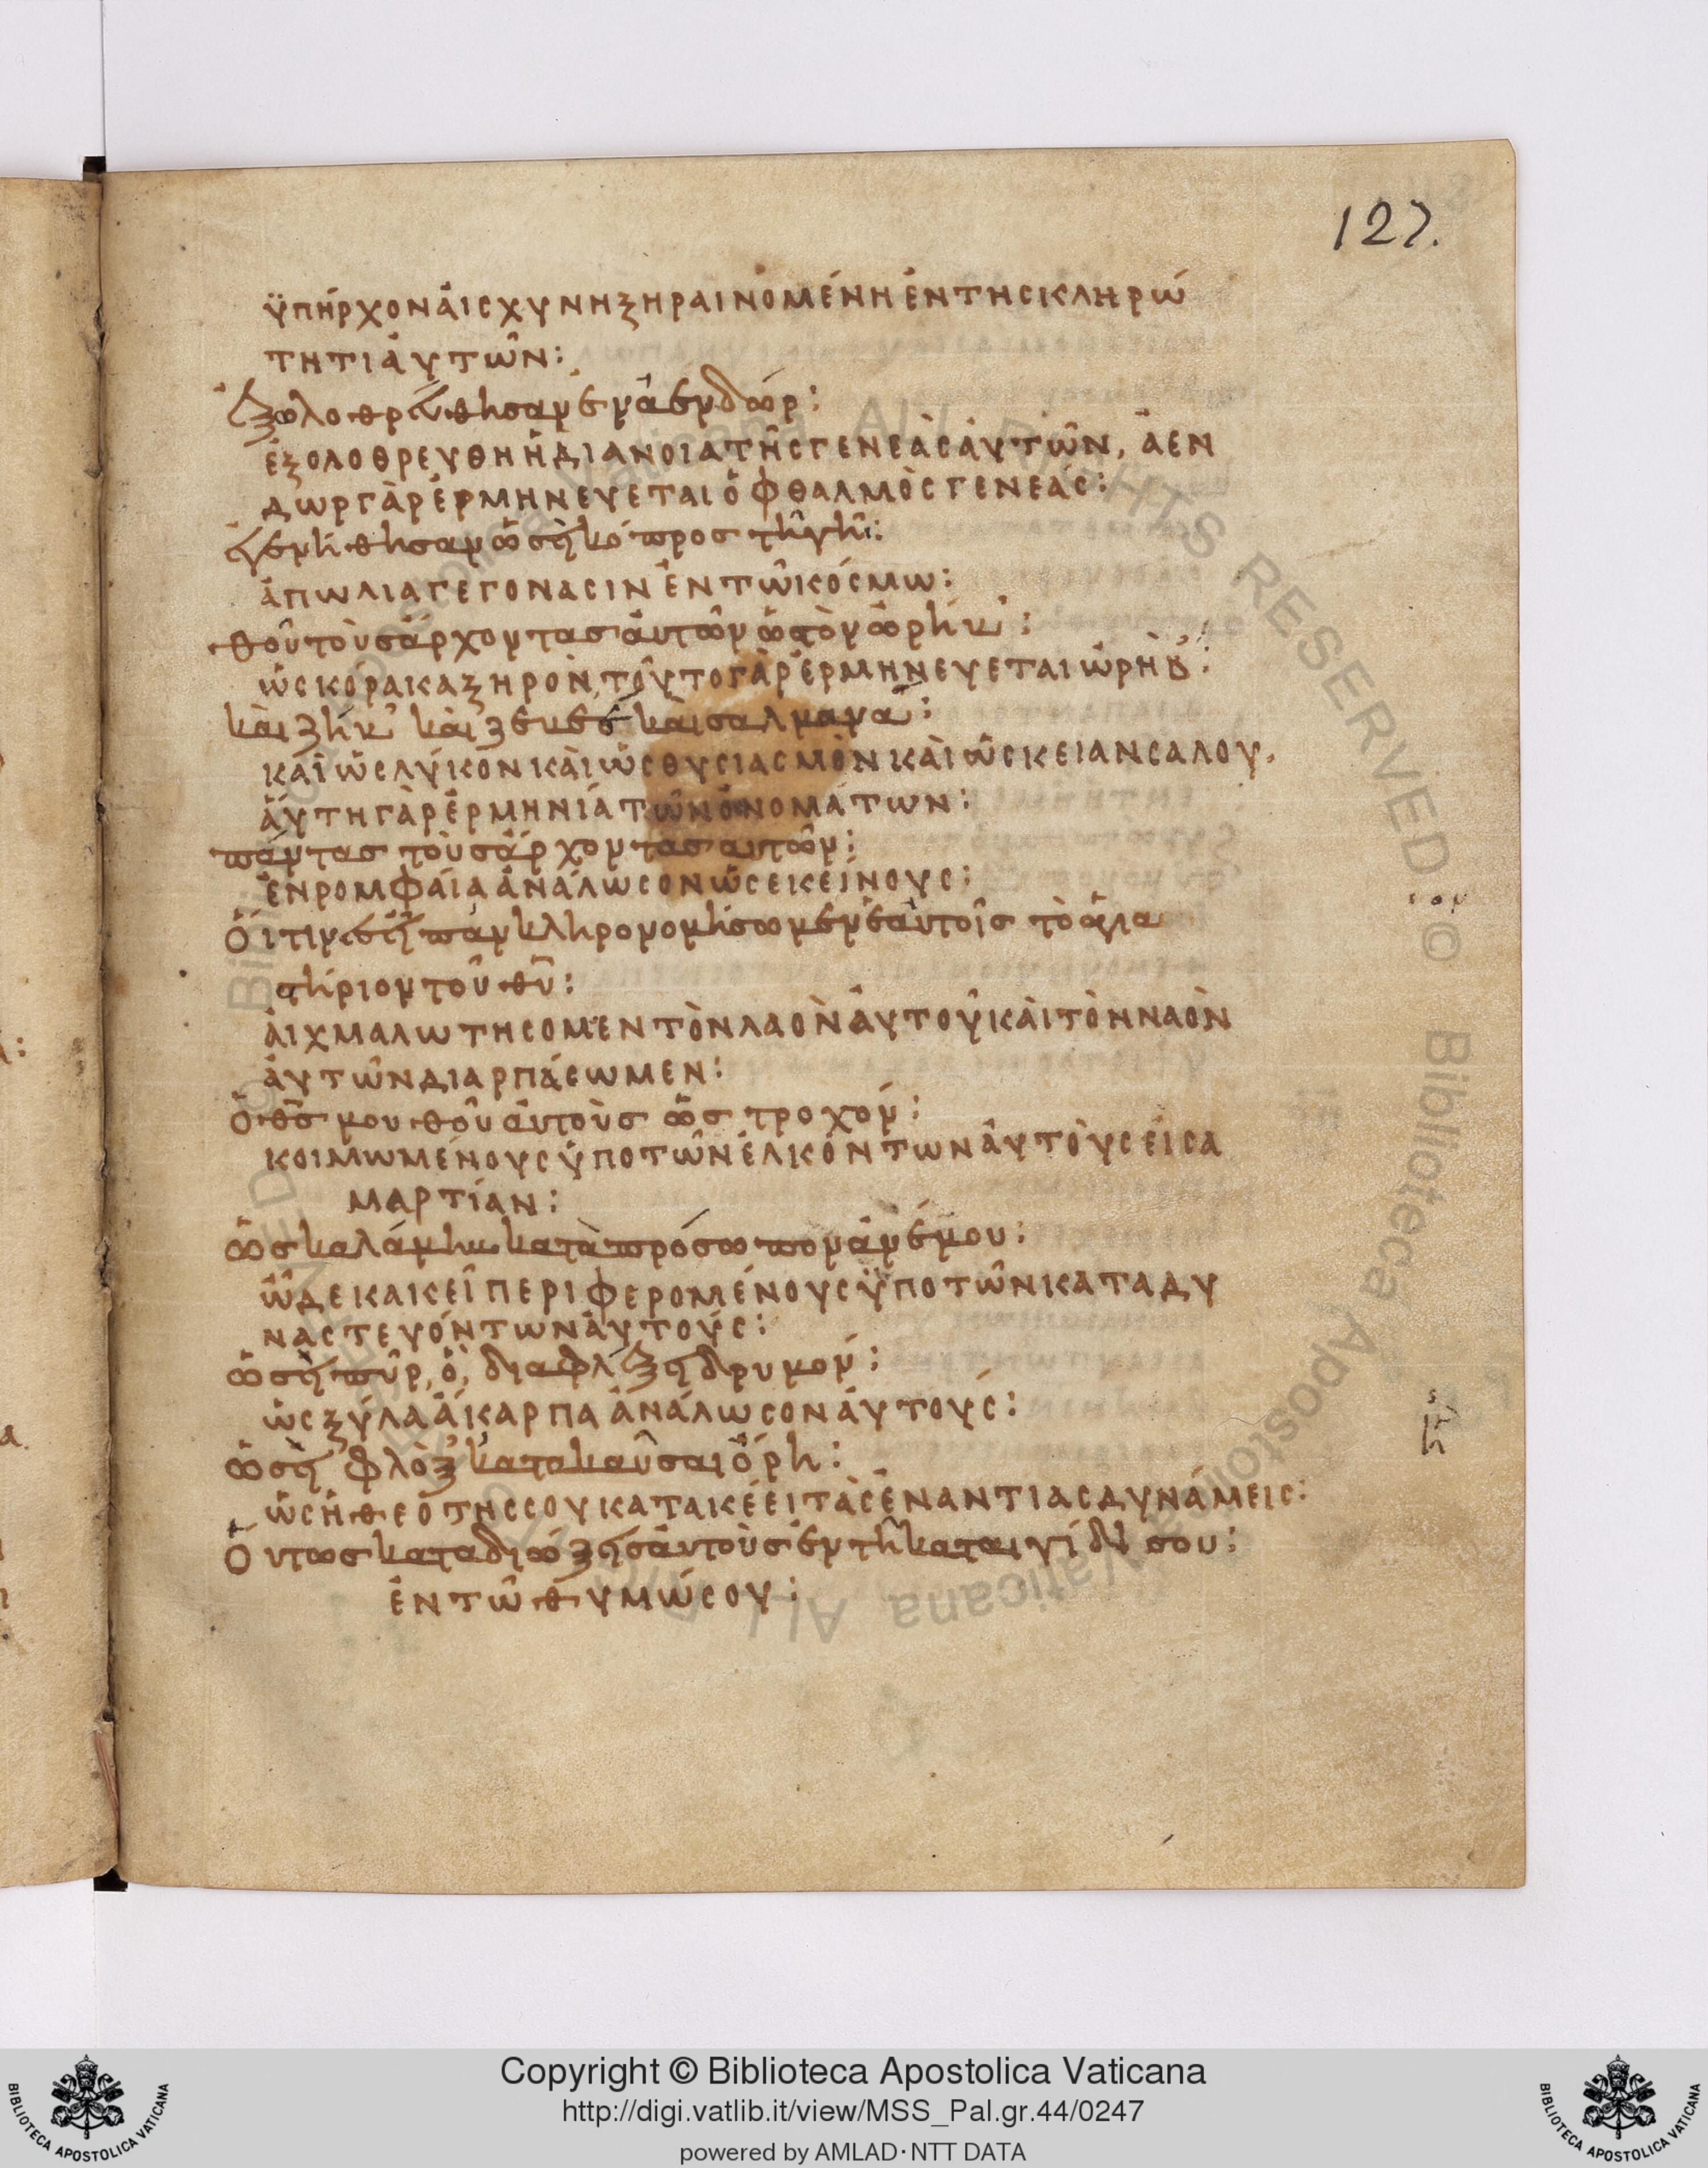 127.
ϋπήρχον ἀισχύνη ξηραινομένη ἐν τῆ σκληρώ
τητι ἀυτῶν:
ἐξωλοθρεύθησαν ἐν ἀενδώρ:
ἐξολοθρευθη ἡ διανοια τῆς γενεὰς ἀυτῶν, ἀεν
δωρ γὰρ ἑρμηνευεται ὀφθαλμὸς γενεάς:
ἐγενήθησαν ὡσὴ κόπρος τῆ γῆ:
ἀπωλια γεγονασιν ἐν τῶ κόσμω:
θοῦ τοὺς ἄρχοντας ἀυτῶν ὡς τὸν ὠρὴβ:
ὡς κόρακα ξηρον τοῦτο γὰρ ἑρμηνευεται ὠρηβ:
κὰι ζὴβ κὰι ζεβεέ κὰι σαλμανα:
κάι ὡς λύκον κὰι ὡς θυσιασμὸν κὰι ὡς κειαν σαλου,
ἅυτη γὰρ ἑρμηνία τῶν ὀνομάτων:
πάντας τὸυς ἄρχοντας αυτῶν:
ἐν ρομφάία ἀνάλωσον ὡς εκείνους:
Ὅιτινες εἶπαν κληρονομήσωμεν ἑαυτοῖς τὸ ἁγια
στήριον τοῦ θῦ:
ἀιχμαλωτησομεν τὸν λαὸν ἀυτοῦ κὰι τὸν ναὸν
ἀυτῶν διαρπάσωμεν:
Ὁ θς μου θοῦ ἀυτοὺς ὡς τροχον:
κοιμωμένους ὑπο τῶν ἑλκόντων ἀυτοὺς εἰς α
μαρτίαν:
ὡς καλάμην κατὰ πρόσωπον ἀνέμου:
ὧδε κακεῖ περιφερομένους ϋπο τῶν καταδυ
ναστευόντων ἀυτούς:
ὡσὴ πῦρ, ὁ, διαφλέξη δρυμον:
ὡς ξύλα ἄκαρπα ἀνάλωσον ἀυτους:
ὡσὴ φλὸξ κατακαῦσαι ὄρη:
ὡς ἡ θεότης σου κατακέει τὰς ἐναντιας δυνάμεις:
Ὅυτως καταδιώξης ἀυτοὺς ἐν τῆ καταιγίδι σου:
ἐν τῶ θυμώ σου:
Copyright © Biblioteca Apostolica Vaticana
http://digi.vatlib.it/view/MSS_Pal.gr.44/0247
powered by AMLAD·NTT DATA